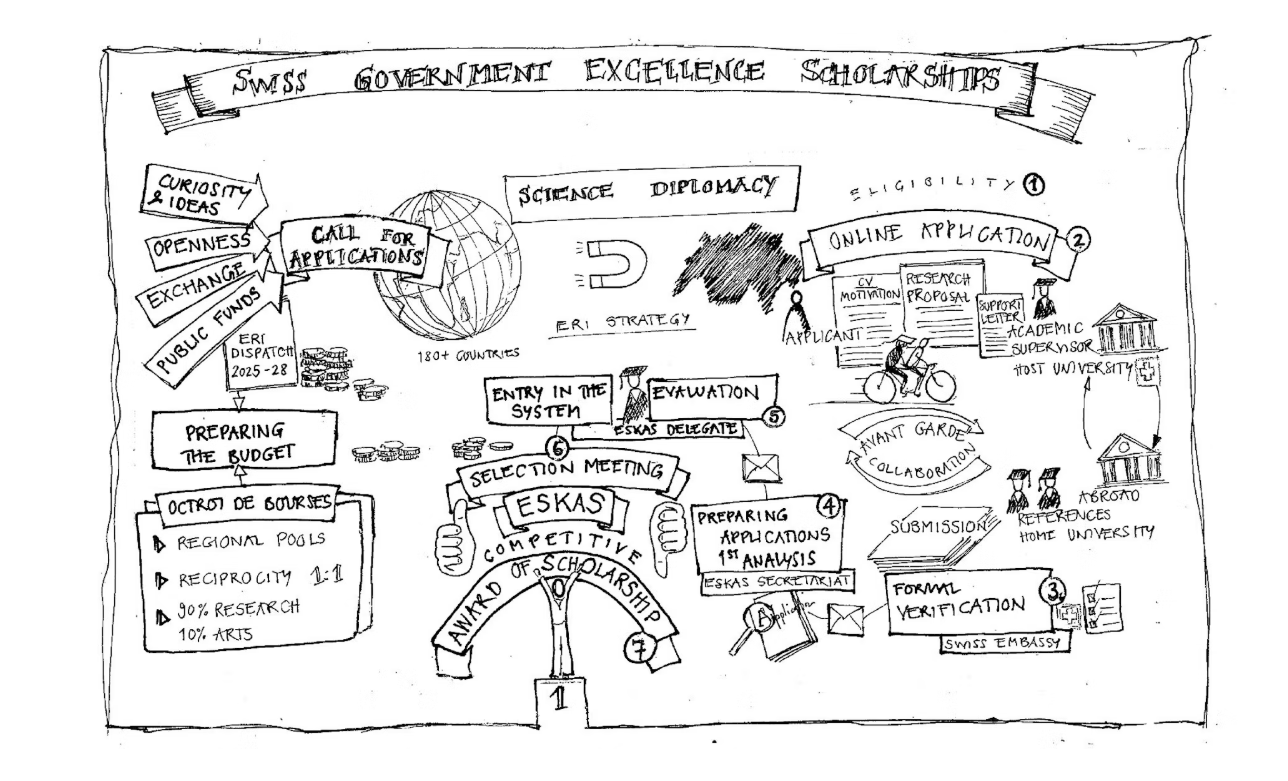 SWISS GOVERNMENT EXCELLENCE SCHOLARSHIPS
CURIOSITY
& IDEAS
OPENNESS
EXCHANGE
PUBLIC FUNDS
CALL FOR
APPLICATIONS
180+ COUNTRIES
ERI
DISPATCH
2025-28
PREPARING
THE BUDGET
OCTROI DE BOURSES
REGIONAL POOLS
RECIPROCITY 1:1
90% RESEARCH
10% ARTS
SCIENCE DIPLOMACY
ERI STRATEGY
ELIGIBILITY 1
ONLINE APPLICATION 2
APPLICANT
CV
MOTIVATION
RESEARCH
PROPOSAL
SUPPORT
LETTER
ACADEMIC
SUPERVISOR
HOST UNIVERSITY
AVANT GARDE
COLLABORATION
ABROAD
REFERENCES
HOME UNIVERSITY
SUBMISSION
FORMAL
VERIFICATION
3
SWISS EMBASSY
Application
A
4
PREPARING
APPLICATIONS
1ST ANALYSIS
ESKAS SECRETARIAT
EVALUATION
5
ESKAS DELEGATE
ENTRY IN THE
SYSTEM
6
SELECTION MEETING
ESKAS
COMPETITIVE
AWARD OF SCHOLARSHIP
7
1